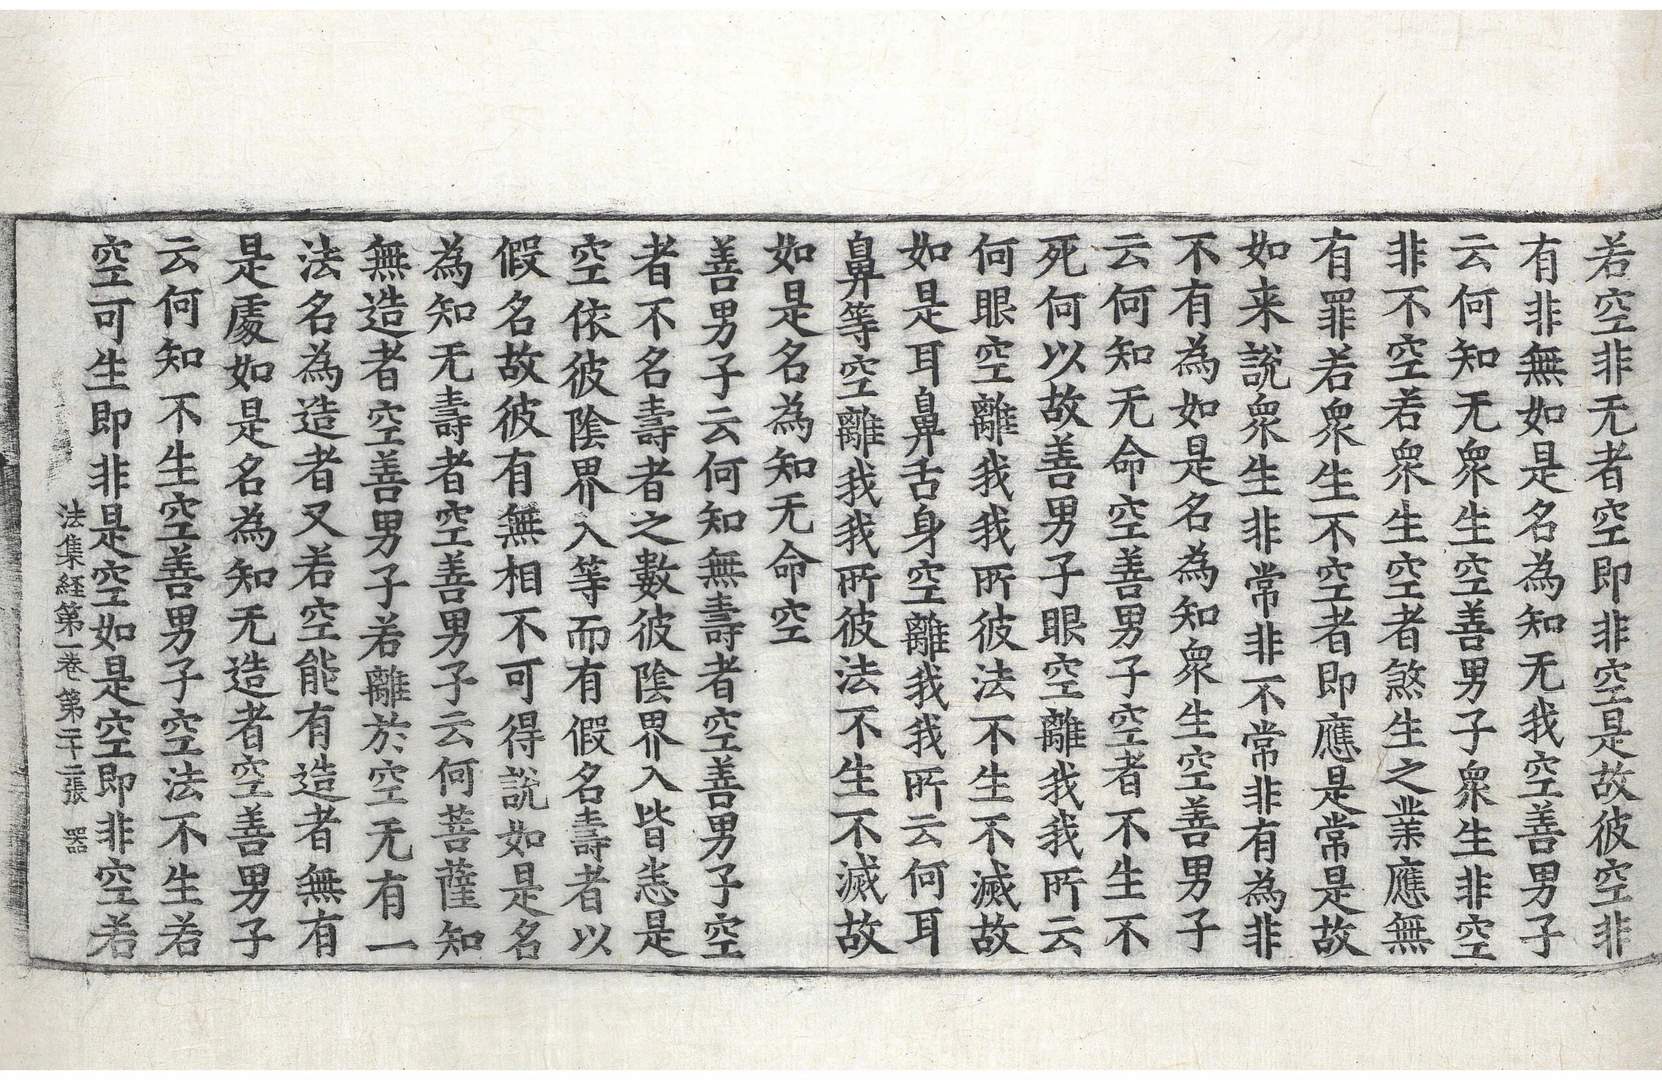 若空非无者空即非空是故彼空非
有非無如是名為知无我空善男子
云何知无衆生空善男子衆生非空
非不空若衆生空者煞生之業應無
有罪若衆生不空者即應是常是故
如来說衆生非常非不常非有為非
不有為如是名為知衆生空善男子
云何知无命空善男子空者不生不
死何以故善男子眼空離我我所云
何眼空離我我所彼法不生不滅故
如是耳鼻舌身空離我我所云何耳
鼻等空離我我所彼法不生不滅故
如是名為知无命空
善男子云何知無壽者空善男子空
者不名壽者之數彼陰界入皆悉是
空依彼陰界入等而有假名壽者以
假名故彼有無相不可得說如是名
為知无壽者空善男子云何菩薩知
無造者空善男子若離於空无有一
法名為造者又若空能有造者無有
是處如是名為知无造者空善男子
云何知不生空善男子空法不生若
空可生即非是空如是空即非空若
法集経第一卷 第二十二張 器